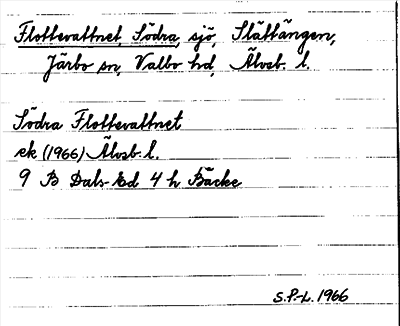 Flottevattnet, Södra, sjö, Slättängen,
Järbo sn, Valbo hd, Älvsb. l.
Södra Flottevattnet
ek (1966) Älvsb. l.
9 B Dals-Ed 4 h Bäcke
S.P-L. 1966